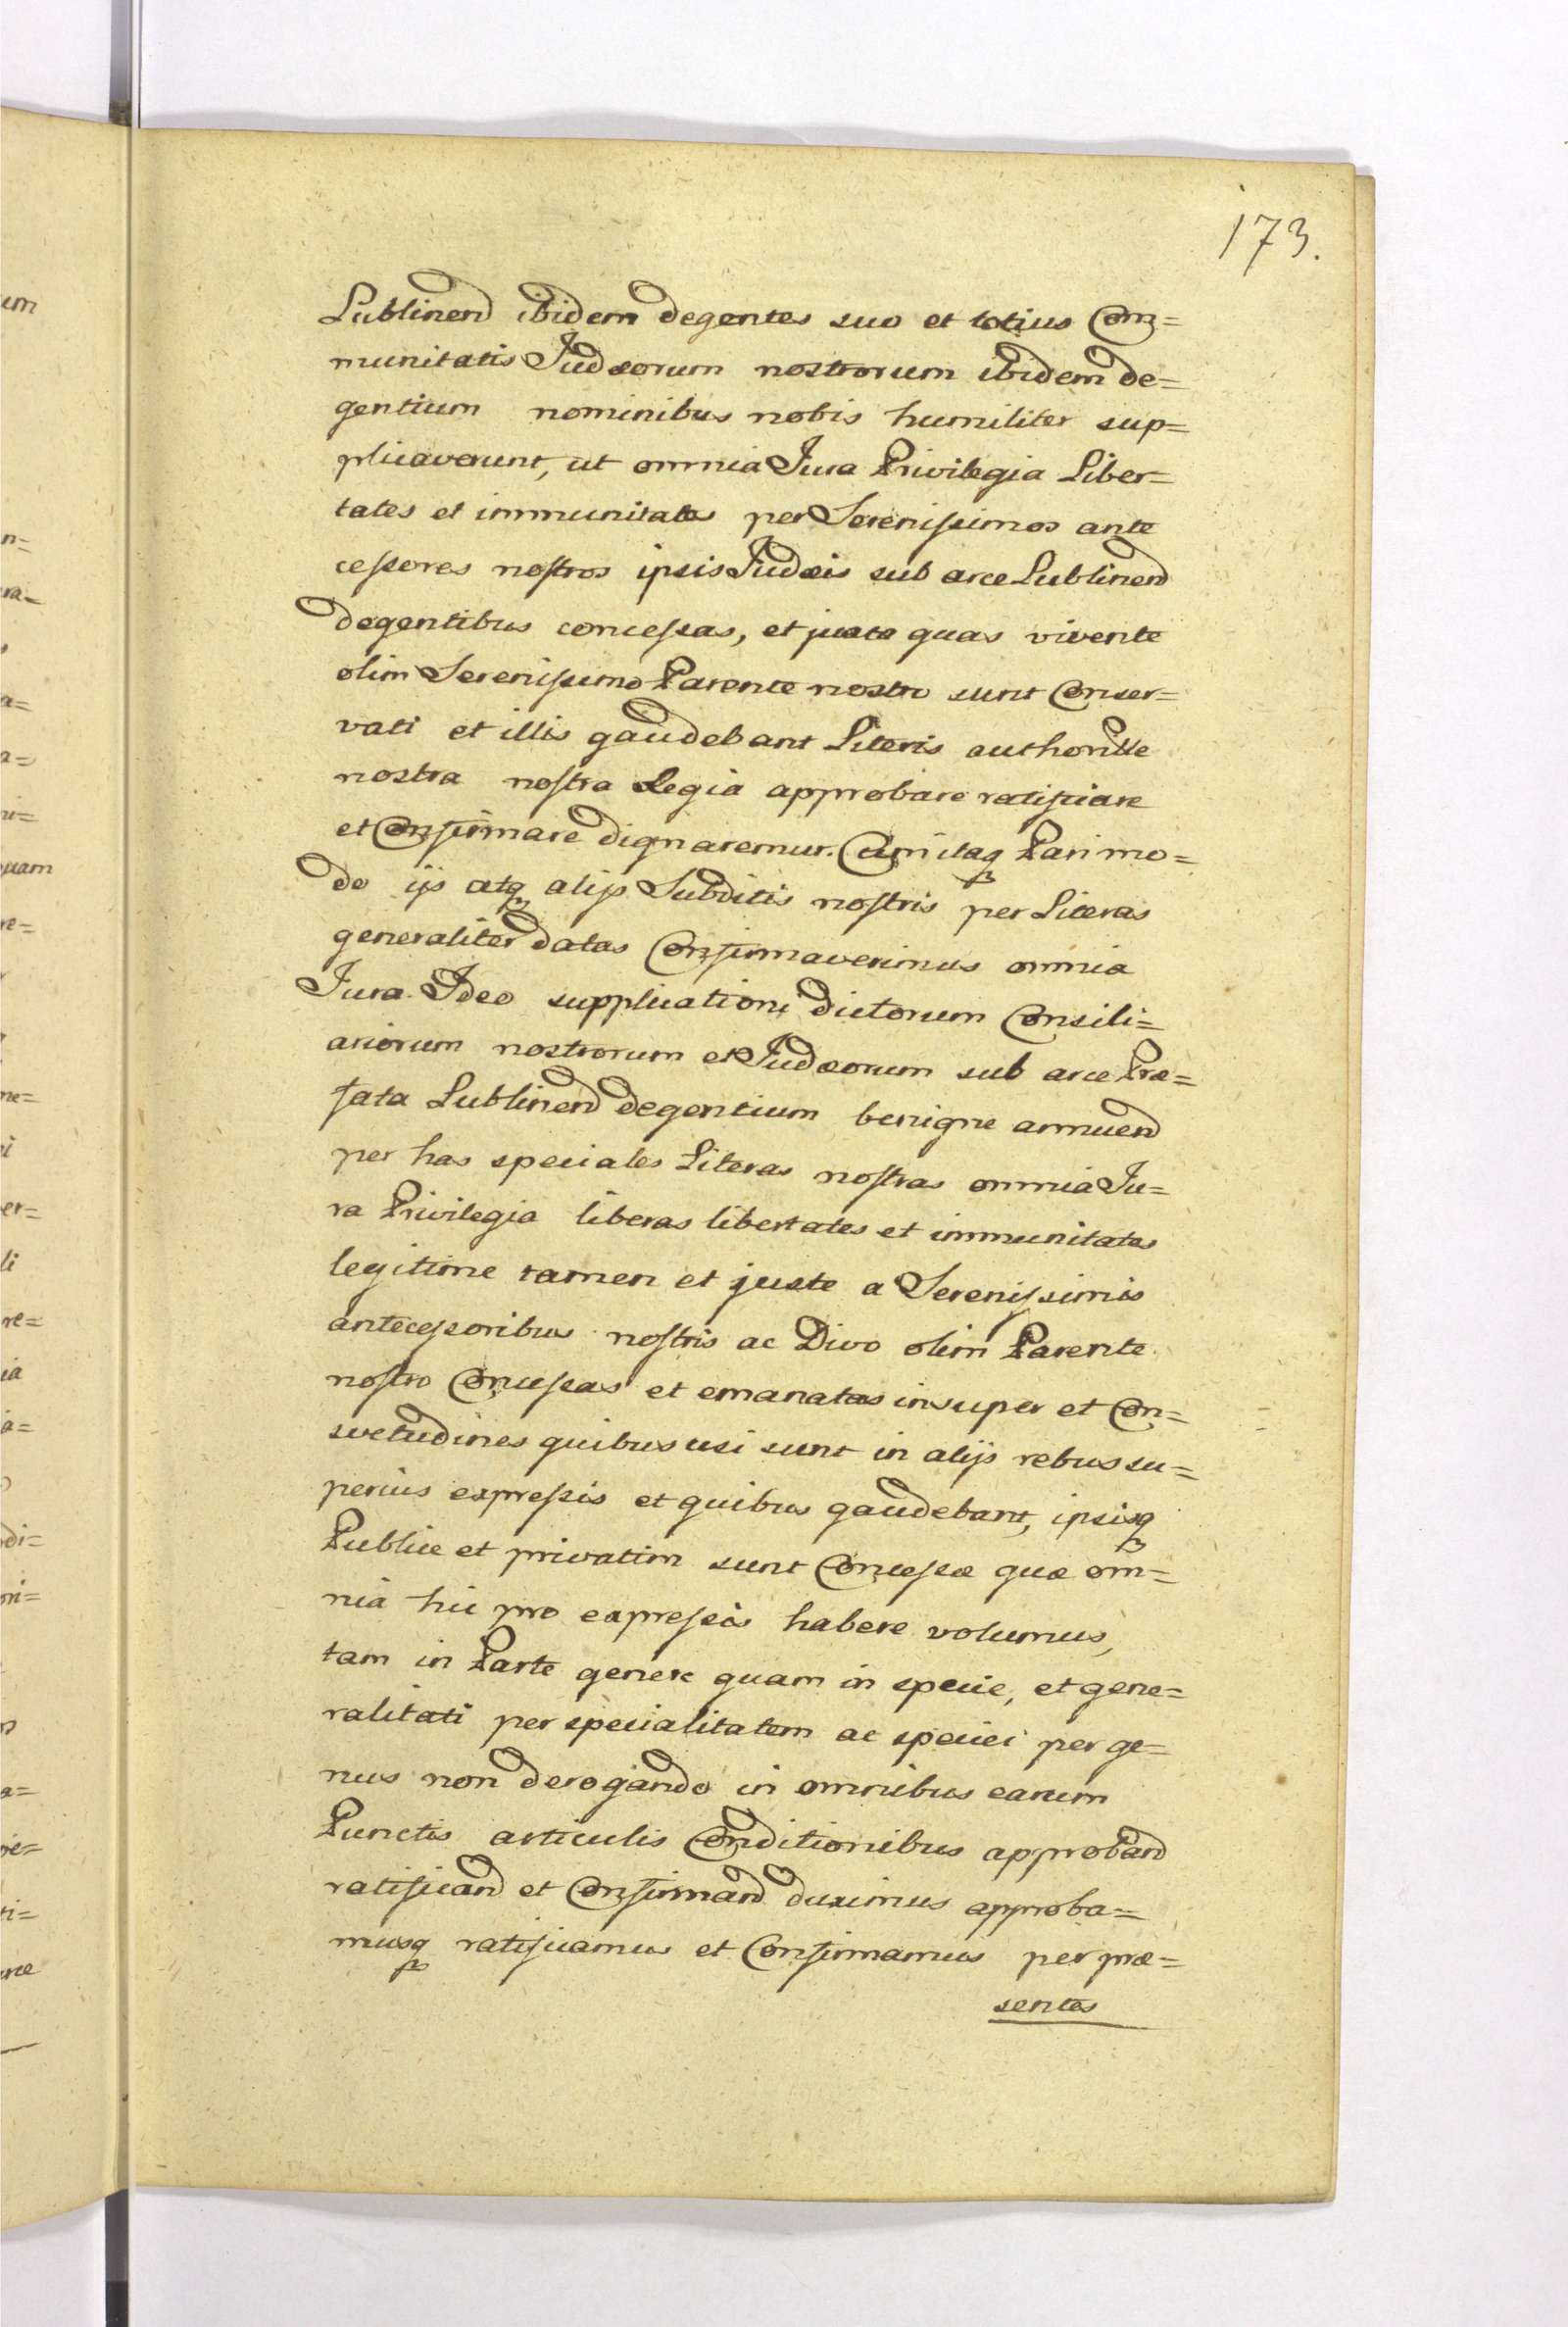 173.
Lublinen̄ ibidem degentes suo et totius Com=
munitatis Judæorum nostrorum ibidem de=
gentium nominibus nobis humiliter sup=
plicaverunt, ut omnia Jura Privilegia Liber=
tates et immunitates per Serenissimos ante
cessores nostros ipsis Judæis sub arce Lublinen̄
degentibus concessas, et juxta quas vivente
olim Serenissimo Parente nostro sunt Conser=
vati et illis gaudebant Literis authoritte
nostra nostra Regia approbare ratificare
et Confirmare dignaremur. Cum itaq Pari mo=
do ijs atq alijs Subditis nostris per Literas
generaliter datas Confirmaverimus omnia
Jura. Ideo supplicationi dictorum Consili=
ariorum nostrorum et Judæorum sub arce Præ=
fata Lublinen̄ degentium benigne annuen̄
per has speciales Literas nostras omnia Ju=
ra Privilegia liberas libertates et immunitates
legitime tamen et juste a Serenissimis
antecessoribus nostris ac Divo olim Parente
nostro Concessas et emanatas insuper et Con=
svetudines quibus usi sunt in alijs rebus su=
perius expressis et quibus gaudebant, ipsisq
Publice et privatim sunt Concessæ quæ om̄=
nia hic pro expressis habere volumus,
tam in Parte genere quam in specie, et gene=
ralitati per specialitatem ac speciei per ge=
nus non derogando in omnibus earum
Punctis articulis Conditionibus approban̄
ratifican̄ et Confirman̄ duximus approba=
musq ratificamus et Confirmamus per præ=
sentes
um
n=
ra=
a=
a=
ri=
quam
re=
ne=
i
er=
li
re=
ia
a=
di=
ori=
a=
ie=
ti=